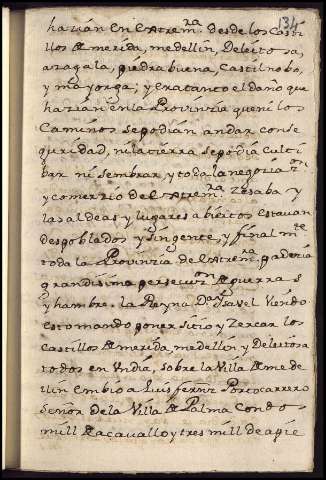 134
hazian en el Atrem.ra desde los Casti
llos de merida, medellin, Deleitosa,
azagala, piedra buena, Castilnobo,
y mayorga; y era tanto el daño que
hazian en la Provinzia que ni los
Caminos se podian andar con se
guridad, ni la tierra se podia culti
bar ni sembrar y toda la negoziaon
y comerzio de el Atrem.ra Zesaba y
las aldeas y lugares abiertos estavan
despoblados y sin gente, y final mte
toda la Provinzia de l'Atrem.re padezia
grandisima persecuzon de guerra s
y hambre. la Reyna Da Ysavel Viendo
esto mando poner sitio y Zercar los
Castillos de merida, medellin y Deleitosa
todos en Un dia, sobre la Villa de mede
llin embio a Luis fernz Portocarrero
Señor de la Villa de Palma con do-
mill de a cavallo y tres mill de a pie